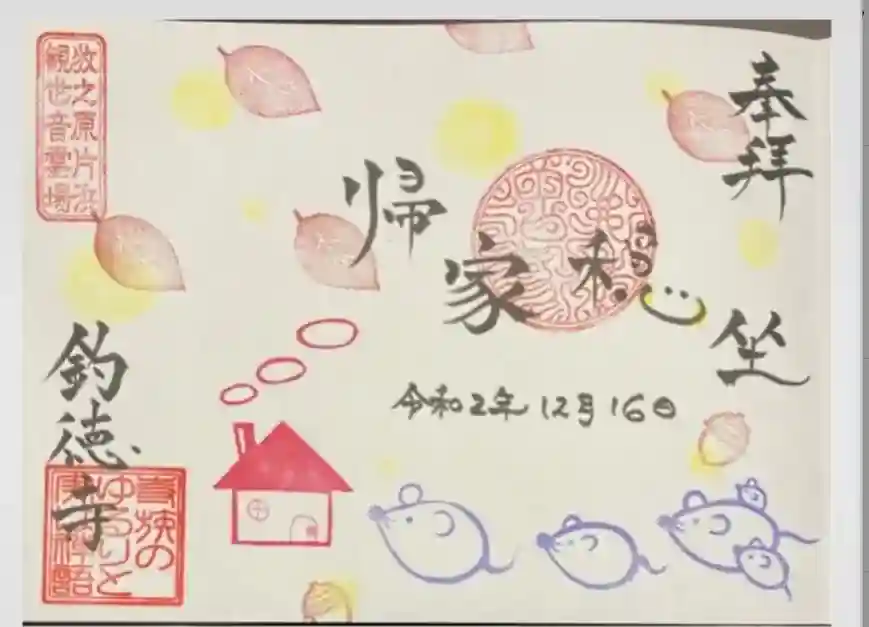 奉拝
帰家穏坐
令和2年12月16日
牧之原片浜
観世音霊場
釣徳寺
ゆるりと